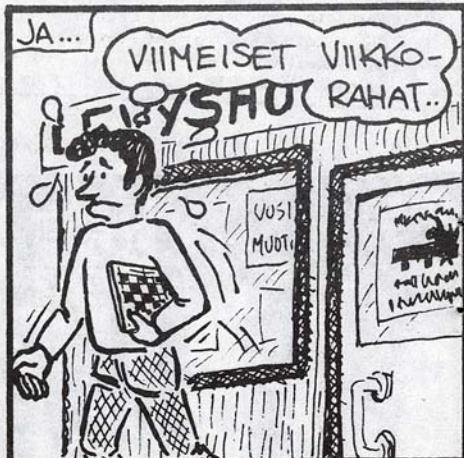 JA...
VIIMEISET VIIKKO-
RAHAT..
UUSI
MUOTI